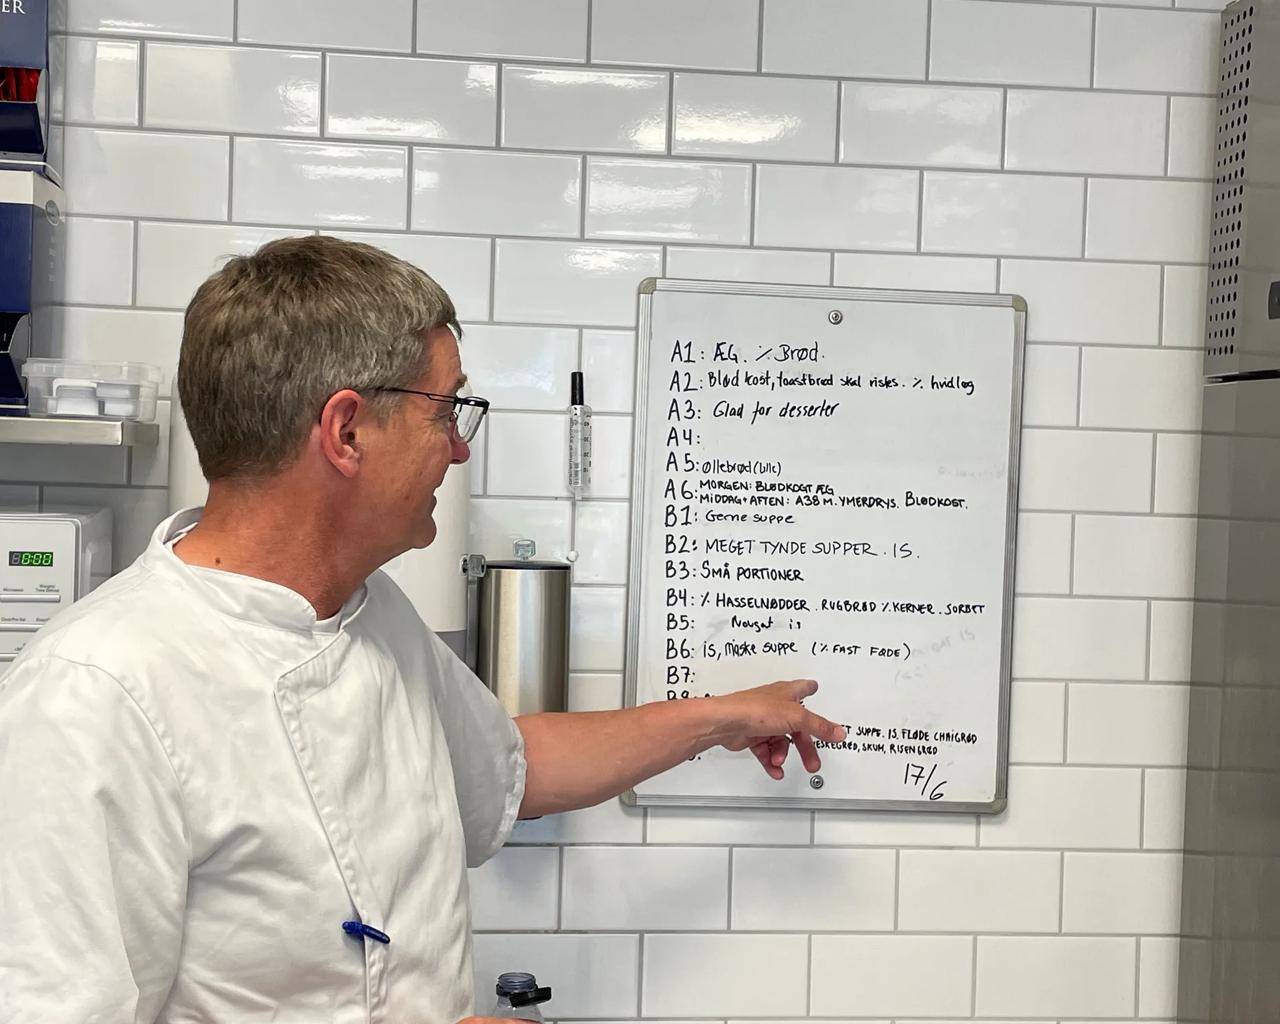 ER
0:00
A1: ÆG. % Brød.
A2: Blød kost, toastbrød skal ristes. % hvidløg
A3: Glad for desserter
A4:
A5: Øllebrød (lille)
A6: MORGEN: BLØDKOGT ÆG
MIDDAG + AFTEN: A38 M. YMERDRYS. BLØDKOST.
B1: Gerne suppe
B2: MEGET TYNDE SUPPER. IS.
B3: SMÅ PORTIONER
B4: % HASSELNØDDER. RUGBRØD % KERNER. SORBET
B5: Nougat is
B6: is, måske suppe (% FAST FØDE)
B7:
B8:
SUPPE. IS. FLØDE CHAIGRØD
SKUM, RISENGRØD
17/6